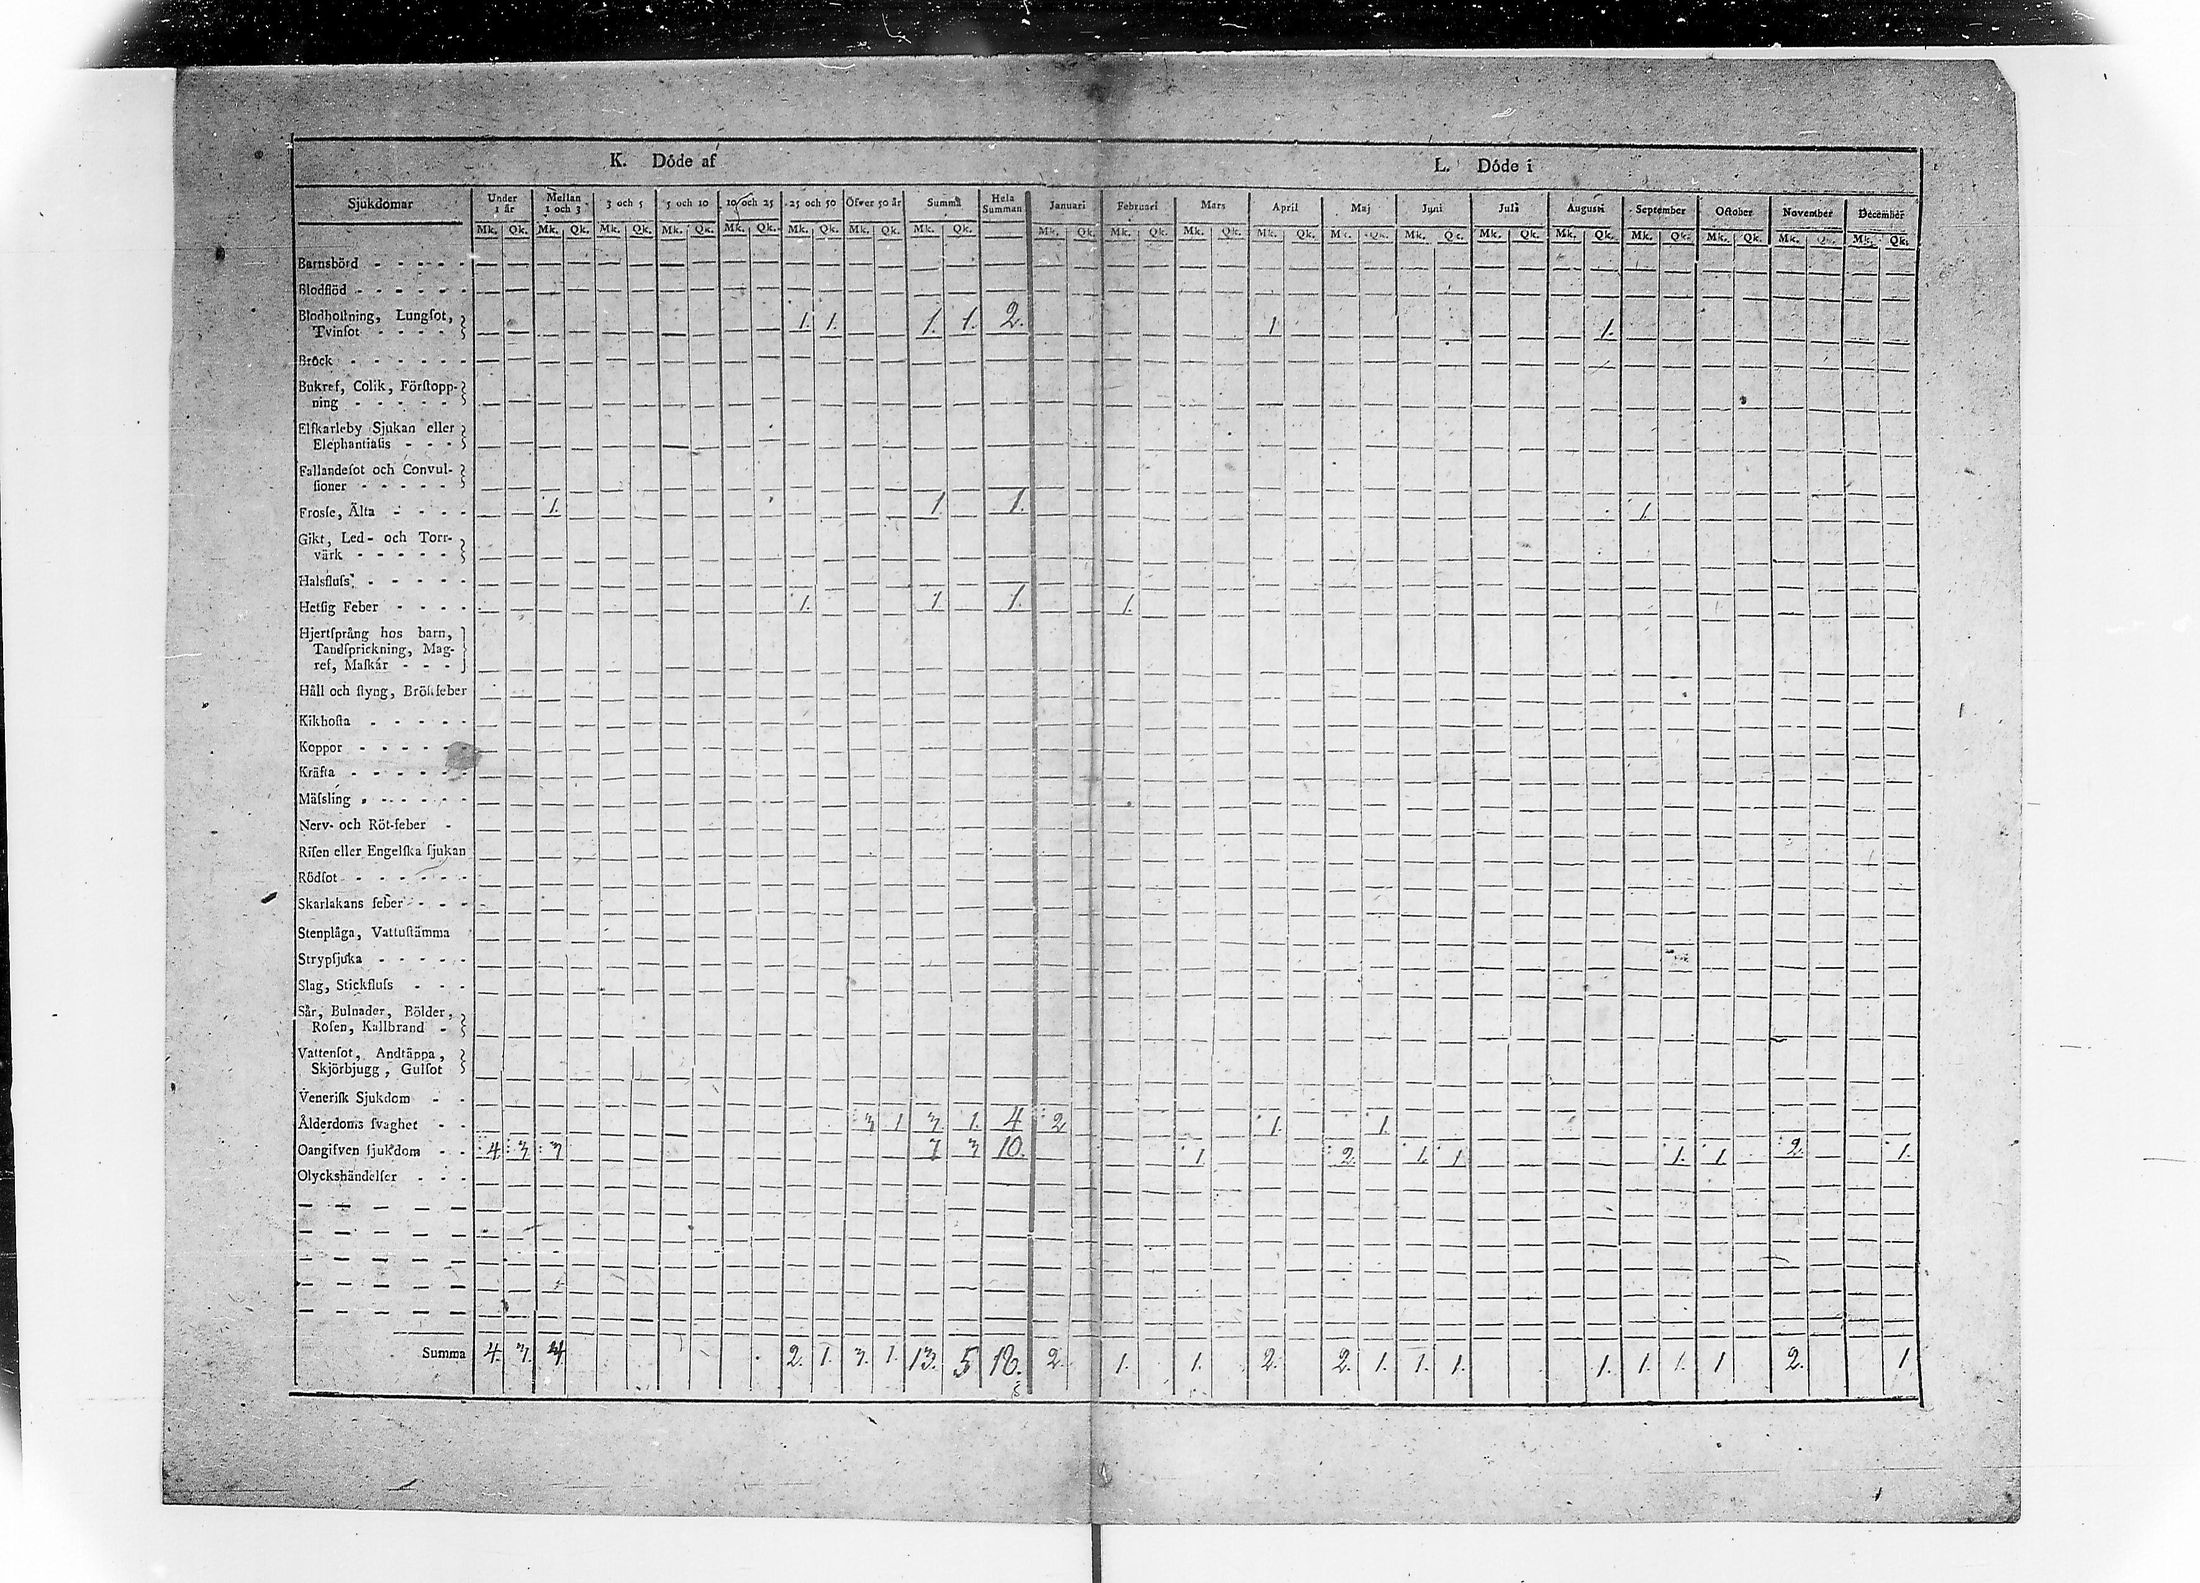 K. Döde af L. Döde i
Sjukdomar Under 1 år Mellan 1 och 3 3 och 5 5 och 10 10 och 25 25 och 50 Öfwer 50 år Summa Hela Summan Januari Februari Mars April Maj Juni Juli Augusti September October November December
Mk. Qk. Mk. Qk. Mk. Qk. Mk. Qk. Mk. Qk. Mk. Qk. Mk. Qk. Mk. Qk. Mk. Qk. Mk. Qk. Mk. Qk. Mk. Qk. Mk. Qk. Mk. Qk. Mk. Qk. Mk. Qk. Mk. Qk. Mk. Qk. Mk. Qk. Mk. Qk.
Barnsbörd
Blodflöd
Blodhoſtning, Lungſot,
Tvinſot 1. 1. 1. 1. 2. 1 1.
Bröck
Bukref, Colik, Förſtopp-
ning
Elſkarleby Sjukan eller
Elephantiaſis
Fallandeſot och Convul-
ſioner
Froſſe, Älta 1. 1. 1. 1
Gikt, Led- och Torr-
värk
Halsfluſs
Hetſig Feber 1. 1. 1. 1.
Hjertſprång hos barn,
Tandſprickning, Mag-
ref, Maſkar
Håll och ſtyng, Bröſtfeber
Kikhoſta
Koppor
Kräfta
Mäſsling
Nerv- och Röt-feber
Riſen eller Engelſka ſjukan
Rödſot
Skarlakans feber
Stenplåga, Vattuſtämma
Strypſjuka
Slag, Stickfluſs
Sår, Bulnader, Bölder,
Roſen, Kallbrand
Vattenſot, Andtäppa,
Skjörbjugg, Gulſot
Veneriſk Sjukdom
Ålderdoms ſvaghet 3 1 3. 1. 4 2 1. 1.
Oangifven ſjukdom 4 3 3 7 3 10. 1 2 1. 1 1. 1 2. 1.
Olyckshändelſer
Summa 4. 3. 4. 2. 1. 3. 1. 13. 5 18. 2. 1. 1. 2. 2. 1. 1. 1. 1. 1. 1. 1 2. 1